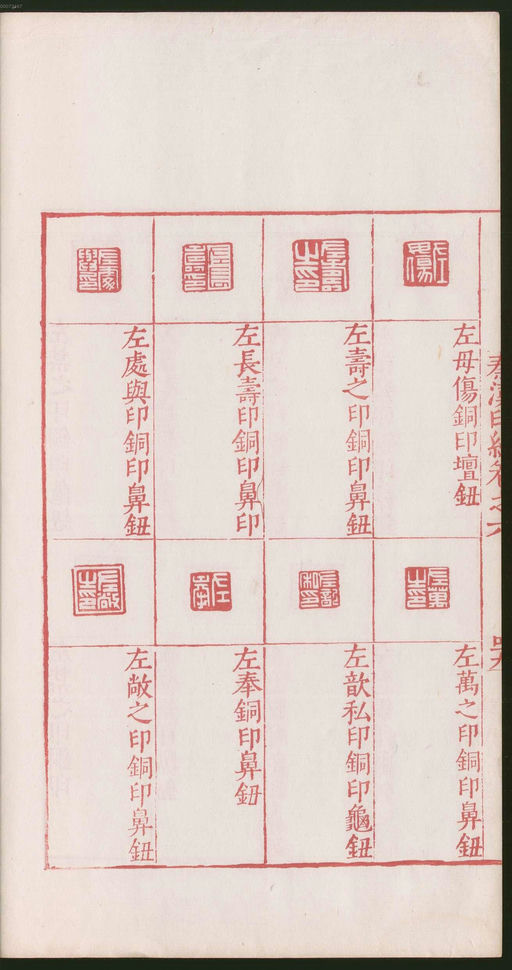 左毋傷銅印壇鈕
左壽之印銅印鼻鈕
左長壽印銅印鼻印
左處與印銅印鼻鈕
左萬之印銅印鼻鈕
左歆私印銅印龜鈕
左奉銅印鼻鈕
左敞之印銅印鼻鈕